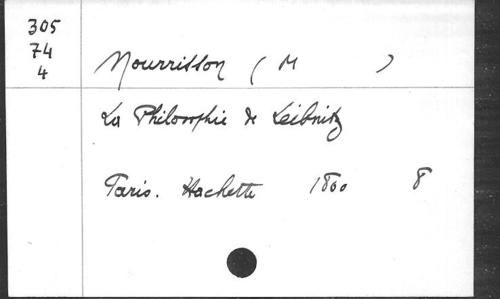 305
74
4
Nourrisson ( M )
La Philosophie de Leibnitz
Paris. Hachette 1860 8